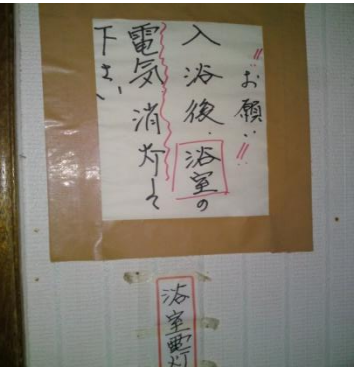 お願い
入浴後、浴室の
電気消灯して
下さい
浴室電灯